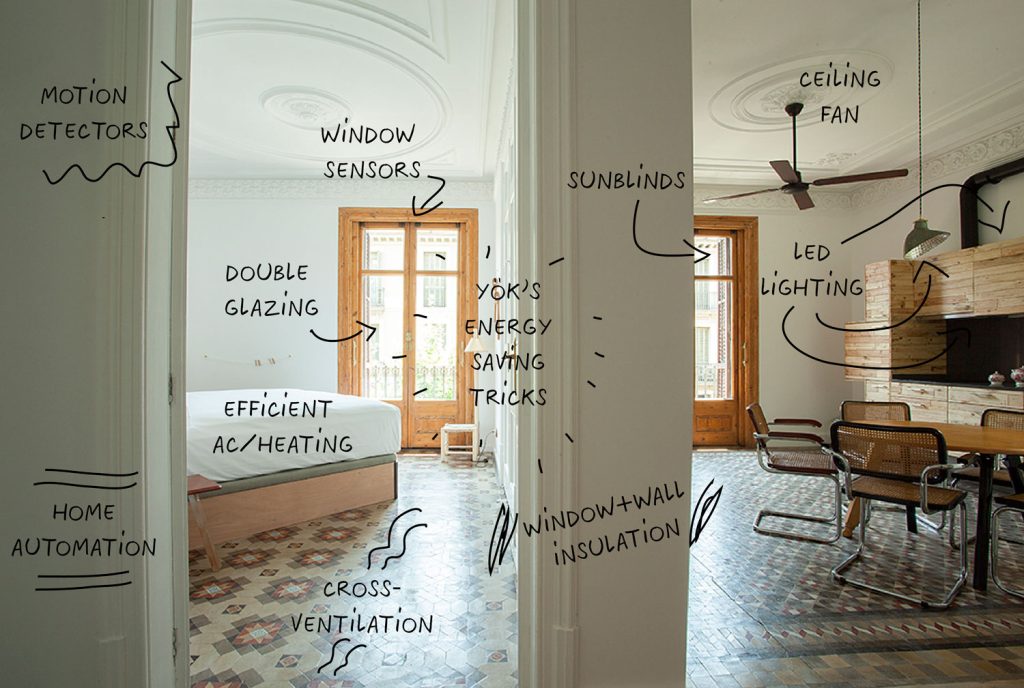 MOTION
DETECTORS
WINDOW
SENSORS
CEILING
FAN
SUNBLINDS
DOUBLE
GLAZING
YÖK'S
ENERGY
SAVING
TRICKS
LED
LIGHTING
EFFICIENT
AC/HEATING
HOME
AUTOMATION
WINDOW+WALL
INSULATION
CROSS-
VENTILATION